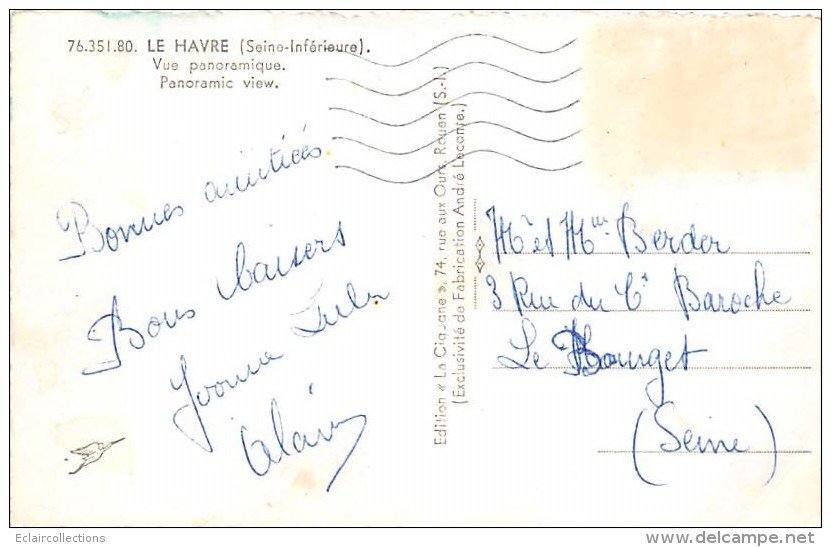 76.351.80. LE HAVRE (Seine-Inférieure).
Vue panoramique.
Panoramic view.
Bonnes amitiés
Bons baisers
Yvonne
Alain
Edition « La Cigogne », 74, rue aux Ours, Rouen (S.-I.)
(Exclusivité de Fabrication André Leconte.)
Mr et Mme Berder
3 Rue du Ct Baroche
Le Bourget
(Seine)
Eclaircollections
www.delcampe.net